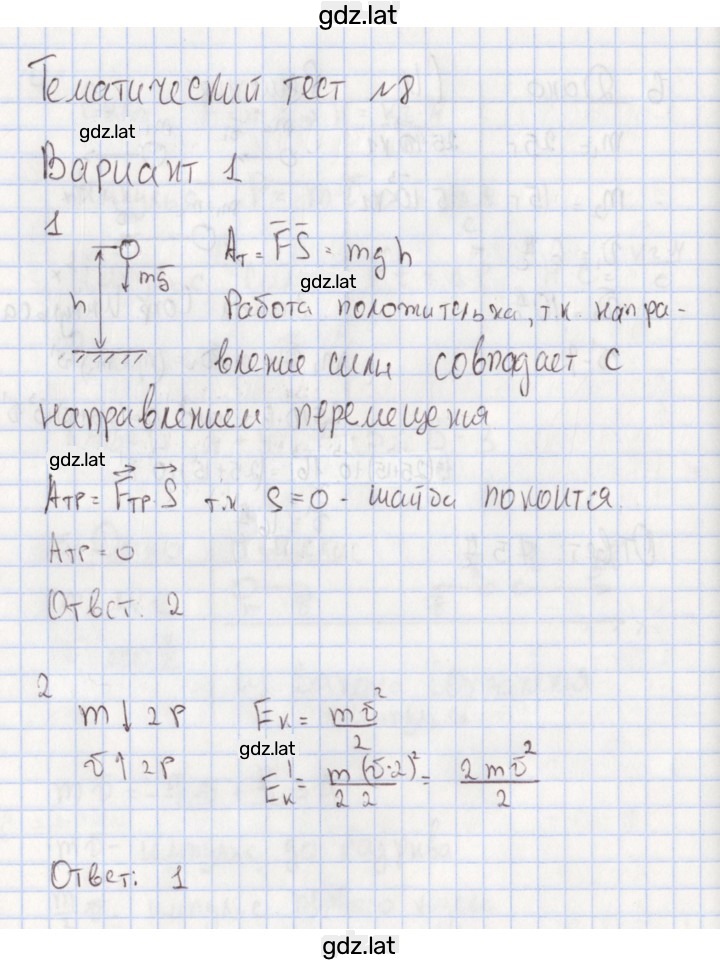 gdz.lat
Тематический тест №8
gdz.lat
Вариант 1
1
mg
h
Aт = F̄S̄ = mgh
gdz.lat
Работа положительна, т.к. напра-
вление силы совпадает с
направлением перемещения
gdz.lat
Aтр = F⃗тр S⃗ т.к S=0 - шайба покоится.
Aтр = 0
Ответ. 2
2
m ↓ 2р Eк = mv²/2
gdz.lat
v ↑ 2р E'к = m(v·2)²/2 2 = 2mv²/2
Ответ: 1
gdz.lat